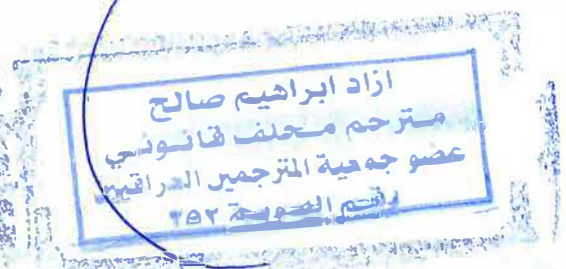 ازاد ابراهيم صالح
مترجم محلف قانوني
عضو جمعية المترجمين العراقيين
رقم الهوية ٣٥٢